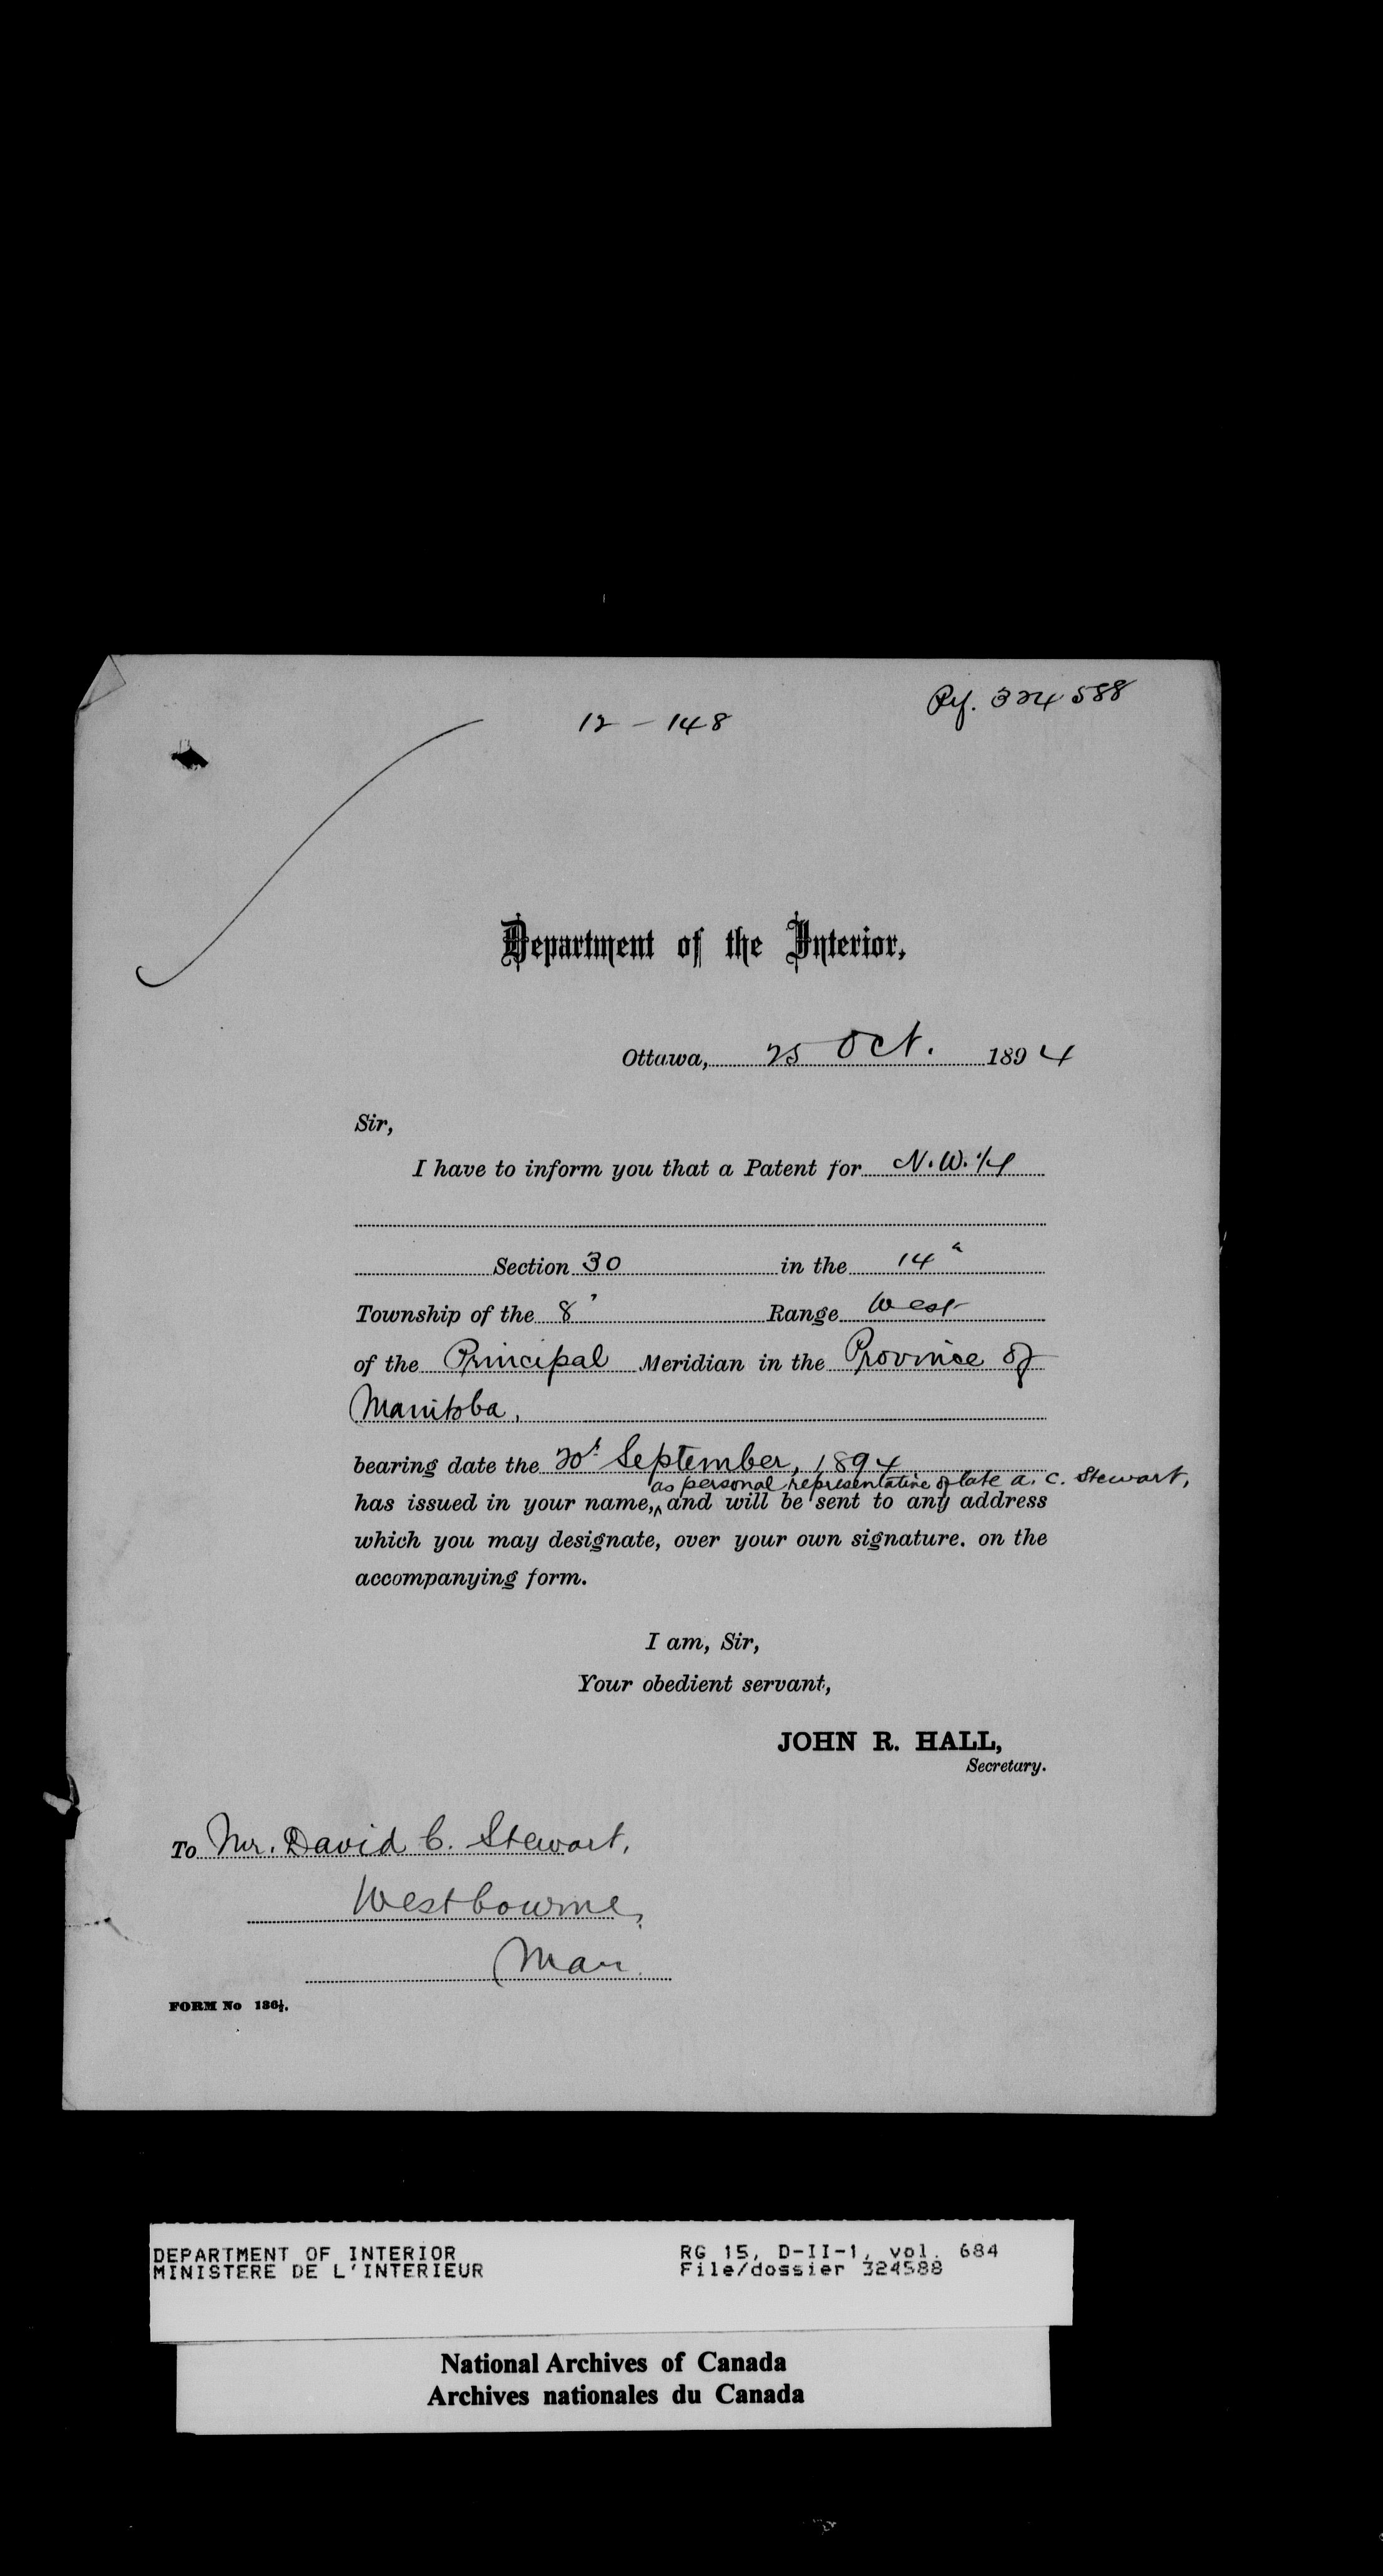 12 - 148
Ref. 324588
Department of the Interior,
Ottawa, 25 Oct. 1894
Sir,
I have to inform you that a Patent for N.W. 1/4
Section 30 in the 14th
Township of the 8th Range West
of the Principal Meridian in the Province of
Manitoba,
bearing date the 20th September, 1894
as personal representative of late A. C. Stewart,
has issued in your name, ^ and will be sent to any address
which you may designate, over your own signature. on the
accompanying form.
I am, Sir,
Your obedient servant,
JOHN R. HALL,
Secretary.
To Mr. David C. Stewart,
Westbourne,
Man.
FORM No 136½.
DEPARTMENT OF INTERIOR RG 15, D-II-1, vol. 684
MINISTERE DE L'INTERIEUR File/dossier 324588
National Archives of Canada
Archives nationales du Canada